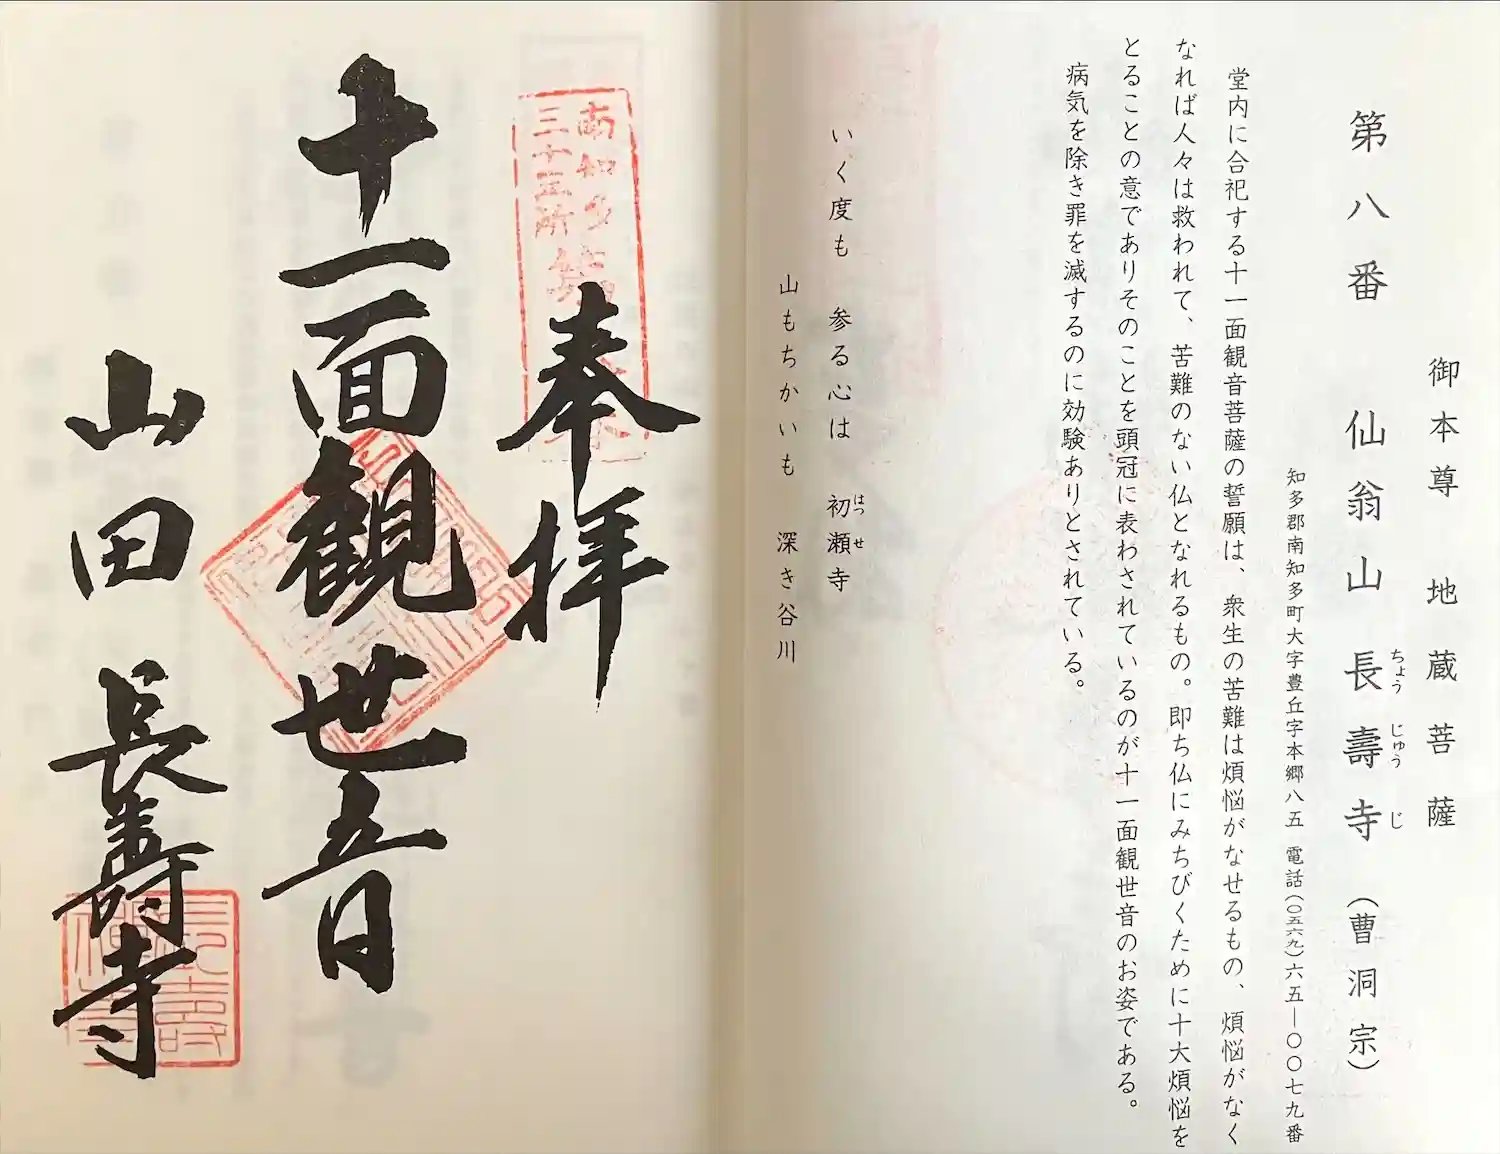 御本尊 地蔵菩薩
第八番 仙翁山長壽寺(曹洞宗)
ちょうじゅうじ
知多郡南知多町大字豊丘字本郷八五 電話(〇五六九)六五―〇〇七九番
堂内に合祀する十一面観音菩薩の誓願は、衆生の苦難は煩悩がなせるもの、煩悩がなく
なれば人々は救われて、苦難のない仏となれるもの。即ち仏にみちびくために十大煩悩を
とることの意でありそのことを頭冠に表わされているのが十一面観世音のお姿である。
病気を除き罪を滅するのに効験ありとされている。
いく度も 参る心は 初瀬寺
はつせ
山もちかいも 深き谷川
南知多
三十三所
奉拝
十一面観世音
山田 長壽寺